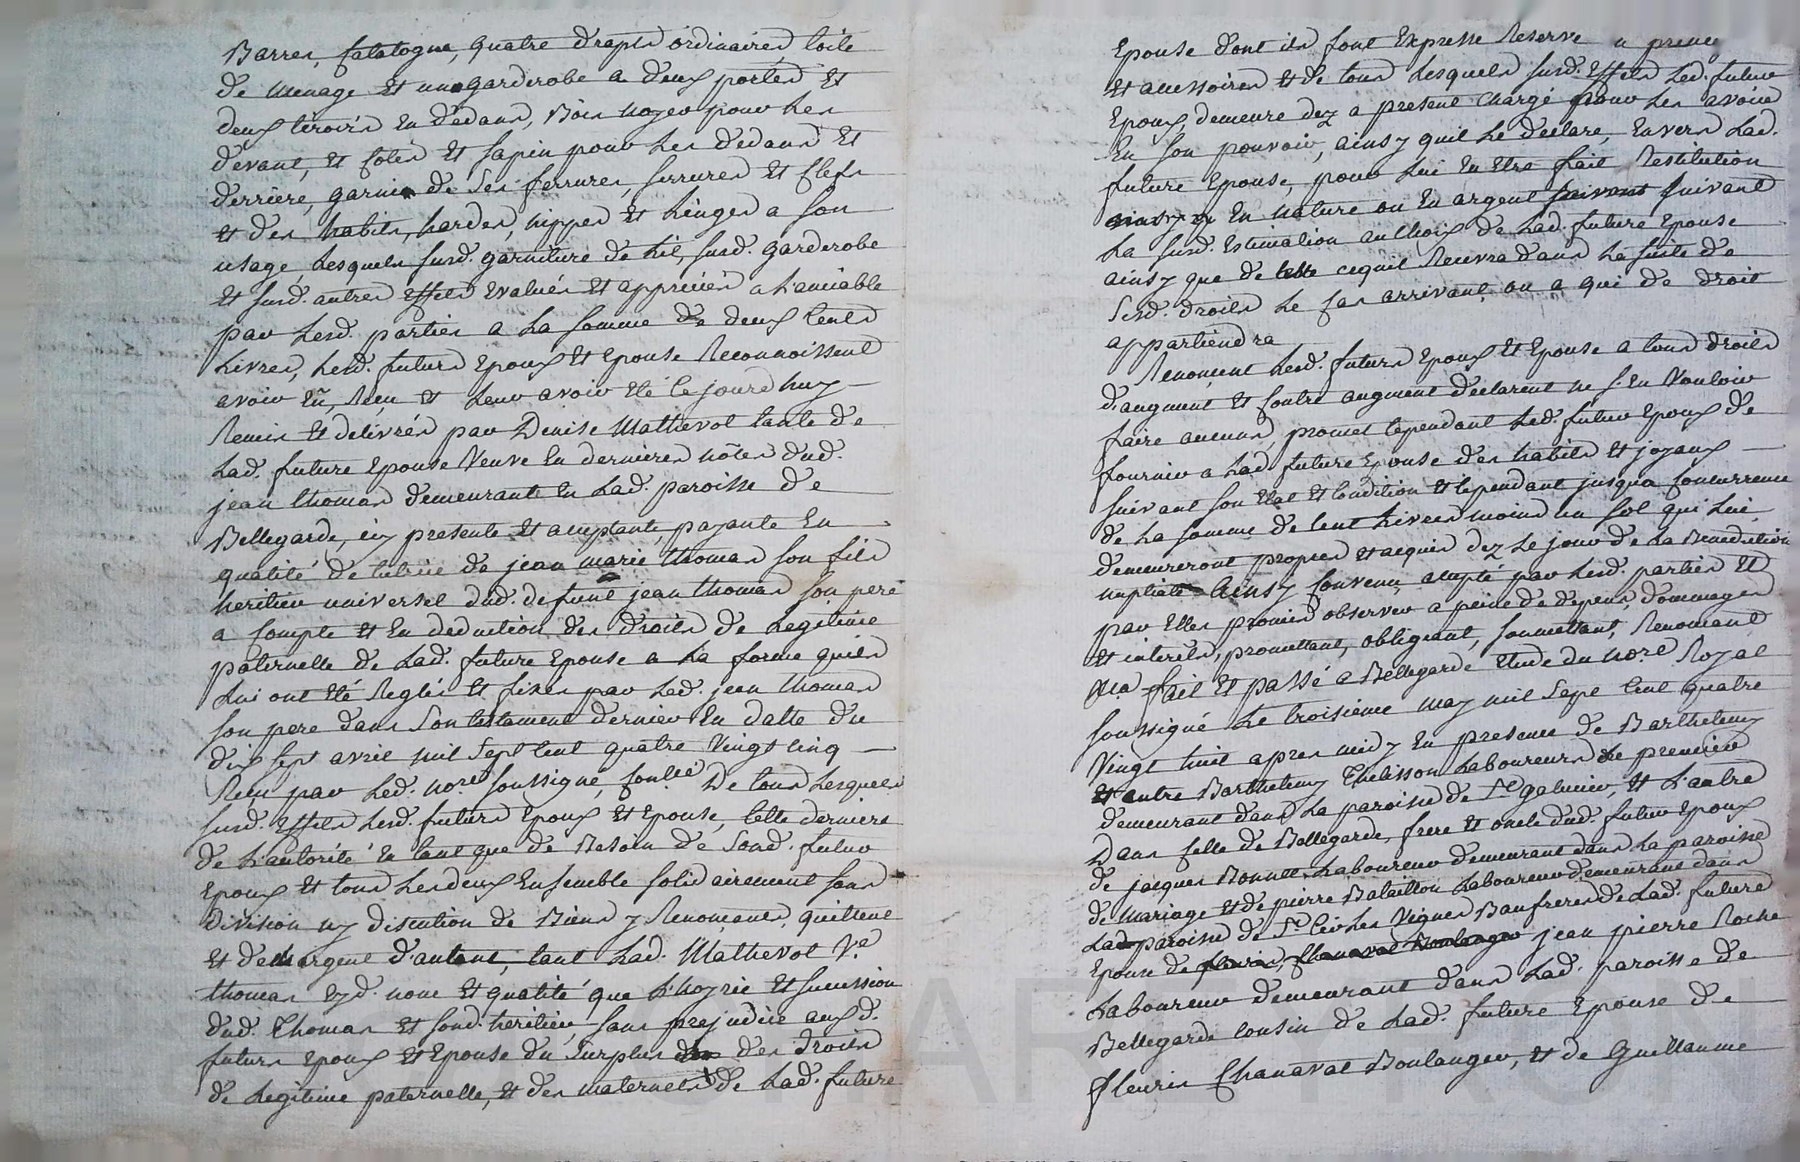 Barres, catalogne, quatre draps ordinaires toile
de menage et une garderobe a deux portes et
deux tiroirs en dedans, Bois noyer pour les
devant, et cotés et sapin pour les dedans et
derrière, garnie de ses ferrures, serrures et clefs
et des habits, hardes, nippes et linges a son
usage, Lesquels susd. garniture de lit, susd. garderobe
et susd. autres effets evalués et appréciés a l'amiable
par lesd. parties a la somme de deux cents
Livres, lesd. futurs epoux et epouse Reconnoissent
avoir Reçu et leur avoir eté ce jourd'huy
Remis et delivrés par Denise Mathevot tante de
Lad. future epouse Veuve en dernieres nôces dud.
jean thomas demeurante en Lad. paroisse de
Bellegarde, icy presente et acceptante, payante en
qualité de tutrice de jean marie thomas son fils
heritier universel dud. defunt jean thomas son pere
a compte et en deduction des droits de Legitime
paternelle de Lad. future epouse a la forme quils
Lui ont eté Reglés et fixés par Led. jean thomas
son pere dans son testament dernier en datte du
dix sept avril mil sept cent quatre Vingt cinq
Reçu par Led. nore soussigné, conllé De tous Lesquels
susd. Effets Lesd. futurs Epoux et Epouse, cette derniere
de L'autorité en tant que de Besoin de Sond. futur
Epoux et tous Lesdeux Ensemble solidairement sans
Division ny discution de Biens y Renonçants, quittent
et dechargent d'autant, tant Lad. Mathevot Ve
thomas ezd. nom et qualité que L'hoyrie et succession
dud. Thomas et sond. heritier, sans prejudice auxd.
futurs epoux et epouse du surplus des droits
de Legitime paternelle, et des maternels de Lad. future
Epouse dont ils font Expresse Reserve
et accessoires et de tous Lesquels susd. Effets Led. futur
Epoux demeure dez a present chargé pour les avoir
en son pouvoir, ainsy quil Le declare, Envers Lad.
future Epouse, pour Lui en etre fait Restitution
en nature ou en argent suivant
La susd. Estimation au Choix de Lad. future epouse
ainsy que de cequil Recevra dans La suite de
Sesd. droits le cas arrivant ou a qui de droit
appartiendra
Renonçent Lesd. futurs epoux et epouse a tous droits
d'augment et contre augment declarent ne s'En Vouloir
faire aucuns, promet cependant Led. futur epoux de
fournir a Lad. future epouse des habits et joyaux
suivant son etat et condition et cependant jusqua concurrence
de la somme de cent Livres moins un sol qui Lui
demeureront propres et acquis dez Le jour de La Benediction
nuptiale Ainsy convenu, accepté par Lesd. parties et
par Elles promis observer a peine de depens, dommages
et interêts, promettant, obligeant, soumettant, Renonçant
fait et passé a Bellegarde etude du nore Royal
soussigné le troisieme may mil sept cent quatre
Vingt huit apres midy en presence de Barthelemy
et autre Barthelemy Thelisson Laboureurs Le premier
demeurant dans La paroisse de St galmier, et L'autre
Dans celle de Bellegarde, frere et oncle dud. futur epoux
de jacques Bonnet Laboureur demeurant dans La paroisse
de Mariage et de pierre Bataillon Laboureur demeurant dans
Lad. paroisse de St Cir Les Vignes Baufreres de Lad. future
Epouse de jean pierre Roche
Laboureur demeurant dans Lad. paroisse de
Bellegarde cousin de Lad. future epouse de
fleurie Chanavat Boulanger, et de Guillaume